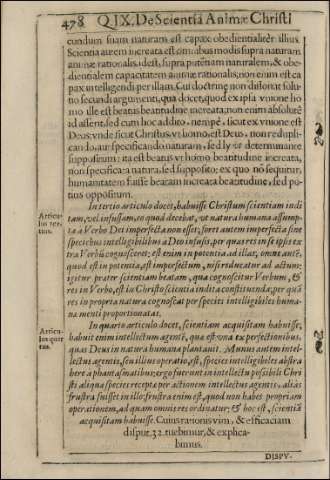 478 Q.IX. De Scientia Animæ Christi
cundum suam naturam est capax obedientialiter illius.
Scientia autem increata est omnibus modis supra naturam
animæ rationalis, idest, supra potentiam naturalem, & obe-
dientialem capacitatem animæ rationalis, non enim est ca
pax intelligendi per illam. Cui doctrinę non dissonat solu-
tio secundi argumenti, qua docet, quod ex ipsa vnione ho
mo ille est beatus beatitudine increata, non enim absolutè
id asserit, sed cum hoc addito, nempè, sicut ex vnione est
Deus: vnde sicut Christus, vt homo, est Deus, non redupli-
cando, aut specificando naturam, sed ly vt determinante
suppositum: ita est beatus vt homo beatitudine increata,
non specificata natura, sed supposito: ex quo nō sequitur,
humanitatem fuisse beatam increata beatitudine, sed po-
tius oppositum.
Articu-
lus ter-
tius.
In tertio articulo docet, habuisse Christum scientiam indi
tam, vel infusam, eo quod decebat, vt natura humana assump
ta a Verbo Dei imperfecta non esset, foret autem imperfecta sine
speciebus intelligibilibus a Deo infusis, per quas res in se ipsis ex
tra Verbū cognosceret: est enim in potentia ad illas, omne autē,
quod est in potentia, est imperfectum, nisi reducatur ad actum:
igitur præter scientiam beatam, qua cognoscitur Verbum, &
res in Verbo, est in Christo scientia indita constituenda, per quā
res in propria natura cognoscat per species intelligibiles huma-
na menti proportionatas.
Articu-
lus quar
tus.
In quarto articulo docet, scientiam acquisitam habuisse,
habuit enim intellectum agentē, qua est vna ex perfectionibus,
quas Deus in natura humana plantauit. Munus autem intel-
lectus agentis, seu illius operatio, est, species intelligibiles abstra
here a phantasmatibus: ergo fuerunt in intellectu possibili Chri
sti aliqua species recepta per actionem intellectus agentis, aliàs
frustra fuisset in illo: frustra enim est, quod non habet propriam
operationem, ad quam omnis res ordinatur; & hoc est, scientiā
acquisitam habuisse. Cuius rationis vim, & efficaciam
disput. 32. tuebimur, & explica-
bimus.
DISPV-